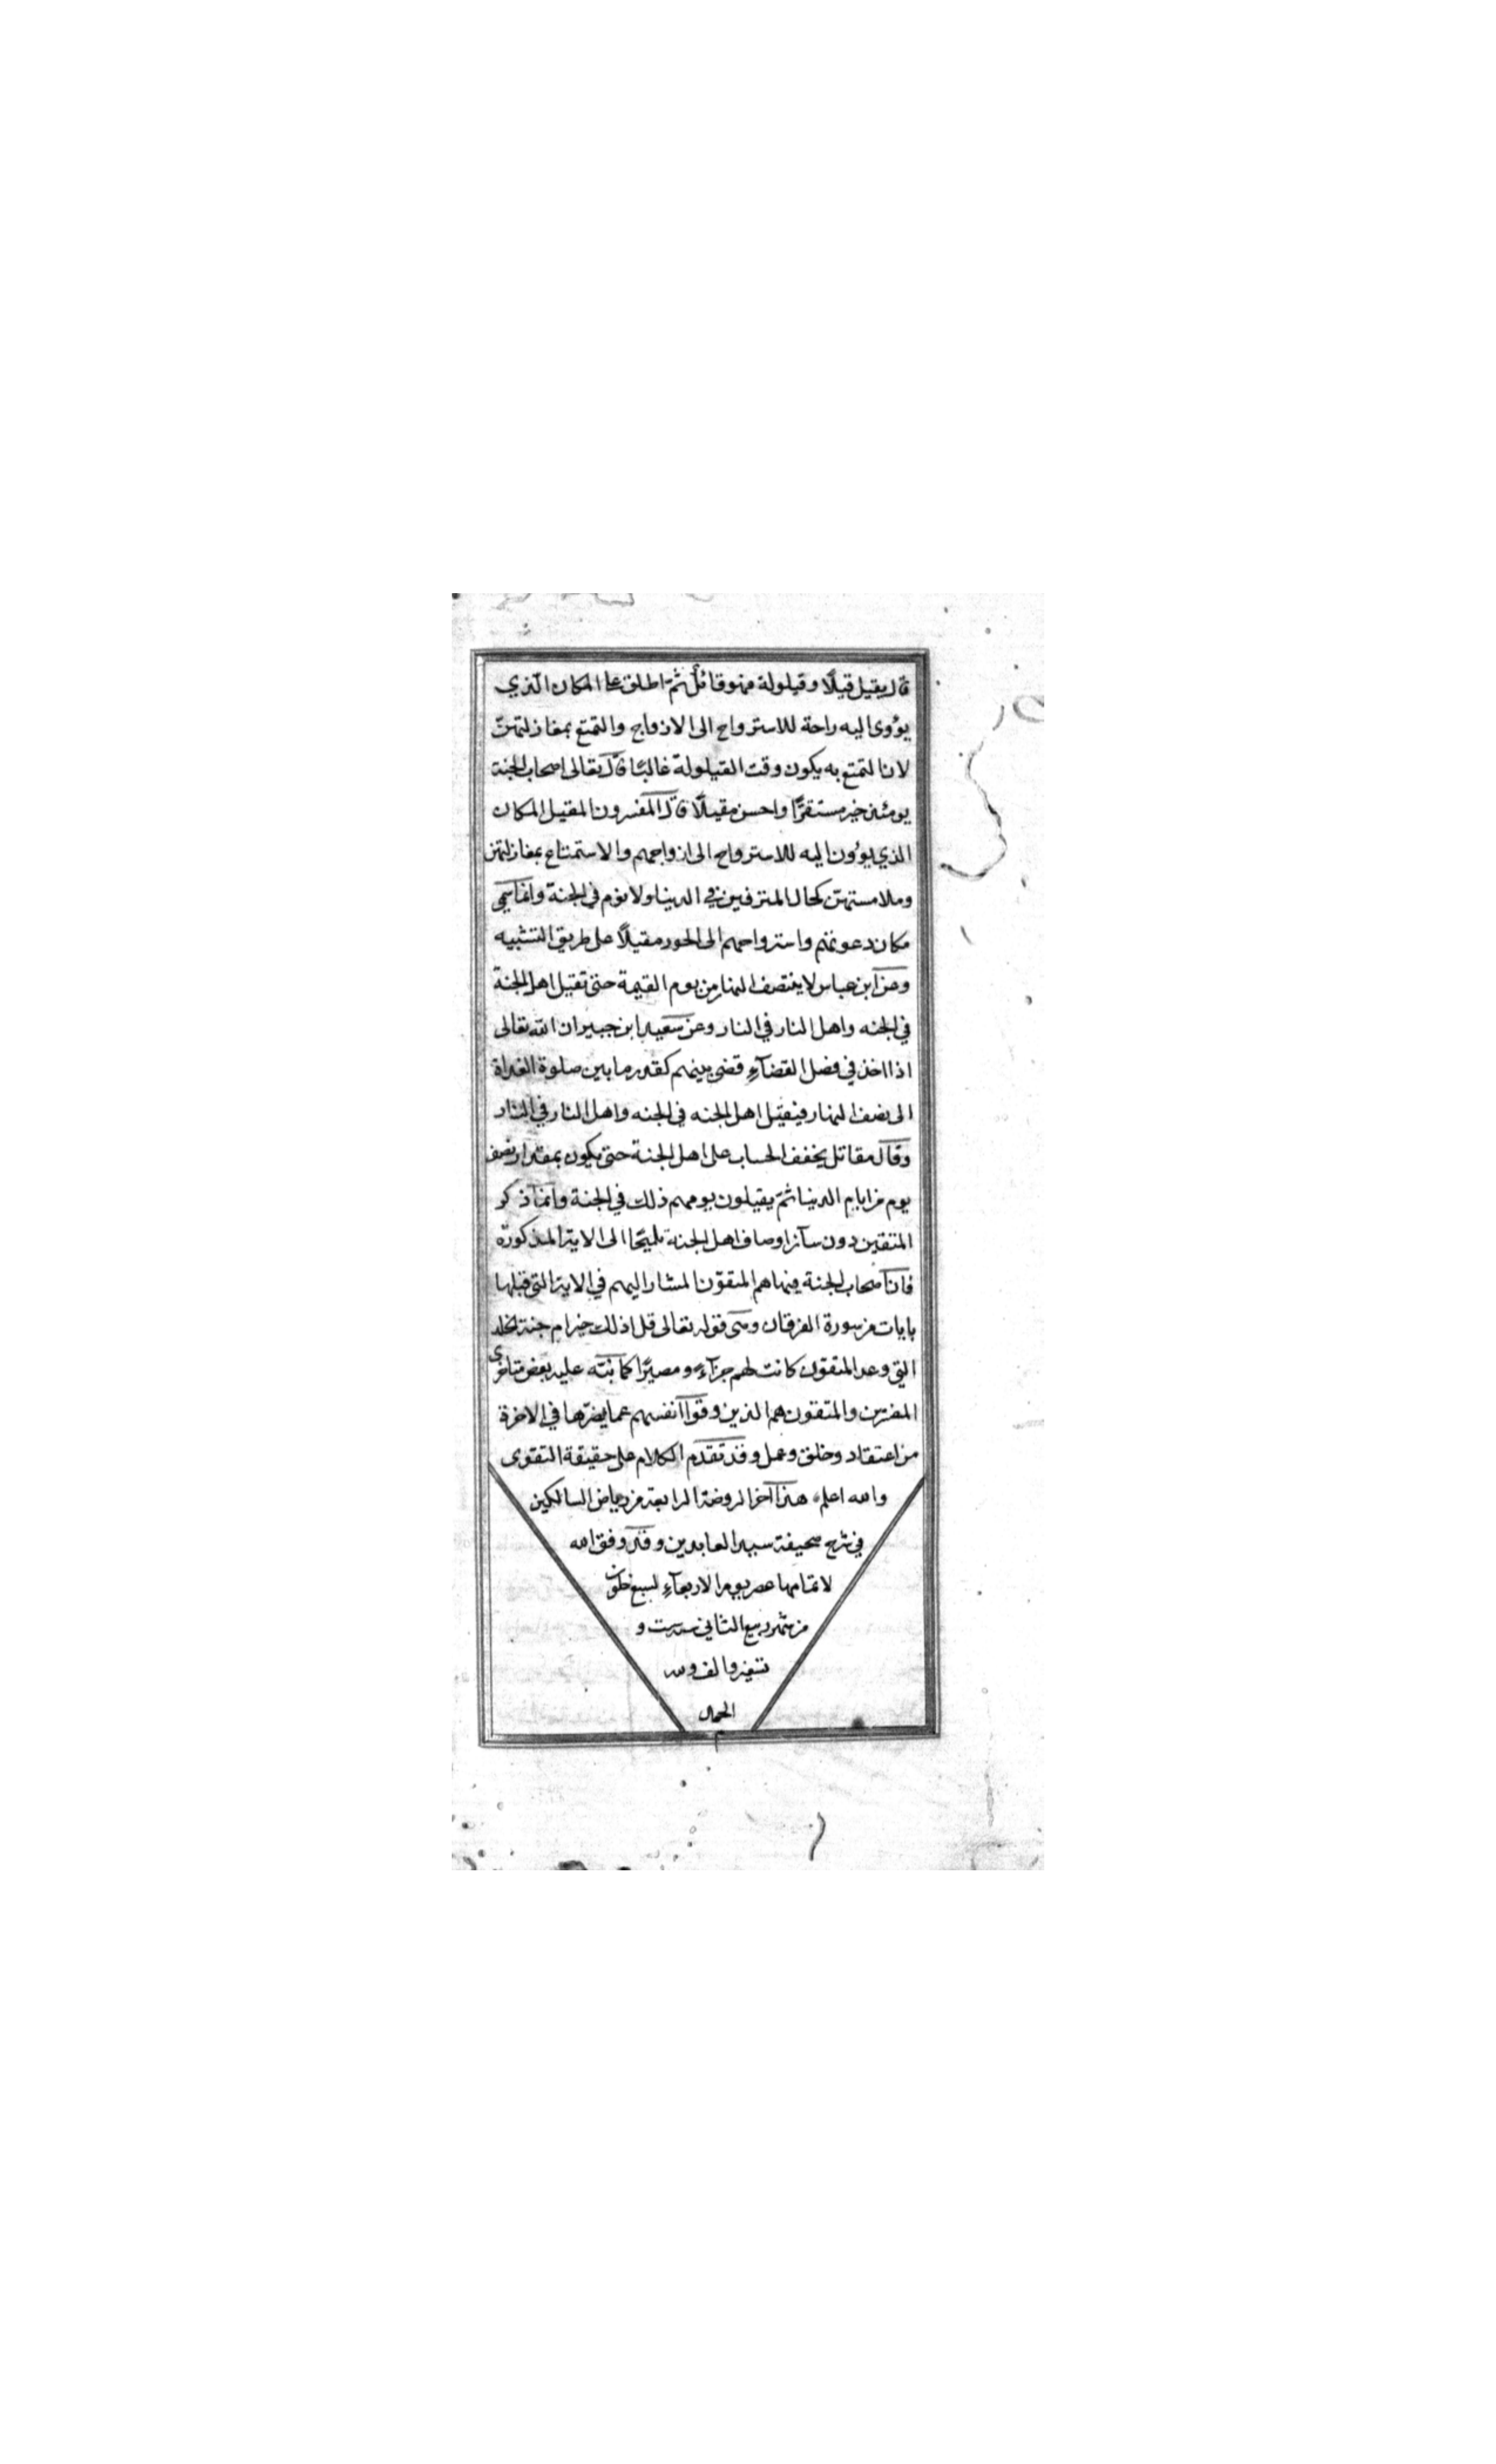 قال يقيل قيلًا وقيلولة فهو قائل ثمّ اطلق على المكان الّذي
يؤوى اليه راحة للاسترواح الى الازواج والتمتع بمغازلتهنّ
لان التمتع به يكون وقت القيلولة غالبًا قال تعالى اصحاب الجنة
يومئذ خير مستقرًّا واحسن مقيلًا قال المفسرون المقيل المكان
الذي يؤون اليه للاسترواح الى ازواجهم والاستمتاع بمغازلتهن
وملامستهنّ كحال المترفين في الدنيا ولا نوم في الجنة وانما سمي
مكان دعوتهم واسترواحهم الى الحور مقيلًا على طريق التشبيه
وعن ابن عباس لا ينتصف النهار من يوم القيمة حتى تقيل اهل الجنة
في الجنه واهل النار في النار وعن سعيد ابن جبير ان الله تعالى
اذا اخذ في فصل القضآء قضى بينهم كقدر ما بين صلوة الغداة
الى نصف النهار فيقيل اهل الجنه في الجنه واهل النار في النار
وقال مقاتل يخفف الحساب على اهل الجنة حتى يكون بمقدار نصف
يوم من ايام الدنيا ثمّ يقيلون يومهم ذلك في الجنة وانما ذكر
المتقين دون سآئر اوصاف اهل الجنة تلميحًا الى الاية المذكورة
فانّ اصحاب الجنة فيها هم المتقون المشار اليهم في الاية التي قبلها
بايات من سورة الفرقان وهي قوله تعالى قل اذلك خير ام جنة الخلد
التي وعد المتقون كانت لهم جزآءً ومصيرًا كما نبّه عليه بعض متاخري
المفسرين والمتقون هم الذين وقوا انفسهم عما يضرّها في الاخرة
من اعتقاد وخلق وعمل وقد تقدّم الكلام على حقيقة التقوى
والله اعلم هذا آخر الروضة الرابعة من رياض السالكين
في شرح صحيفة سيد العابدين وقد وفق الله
لاتمامها عصر يوم الاربعآء لسبع خلون
من شهر ربيع الثاني سنة ست و
تسعين والف ولله
الحمد